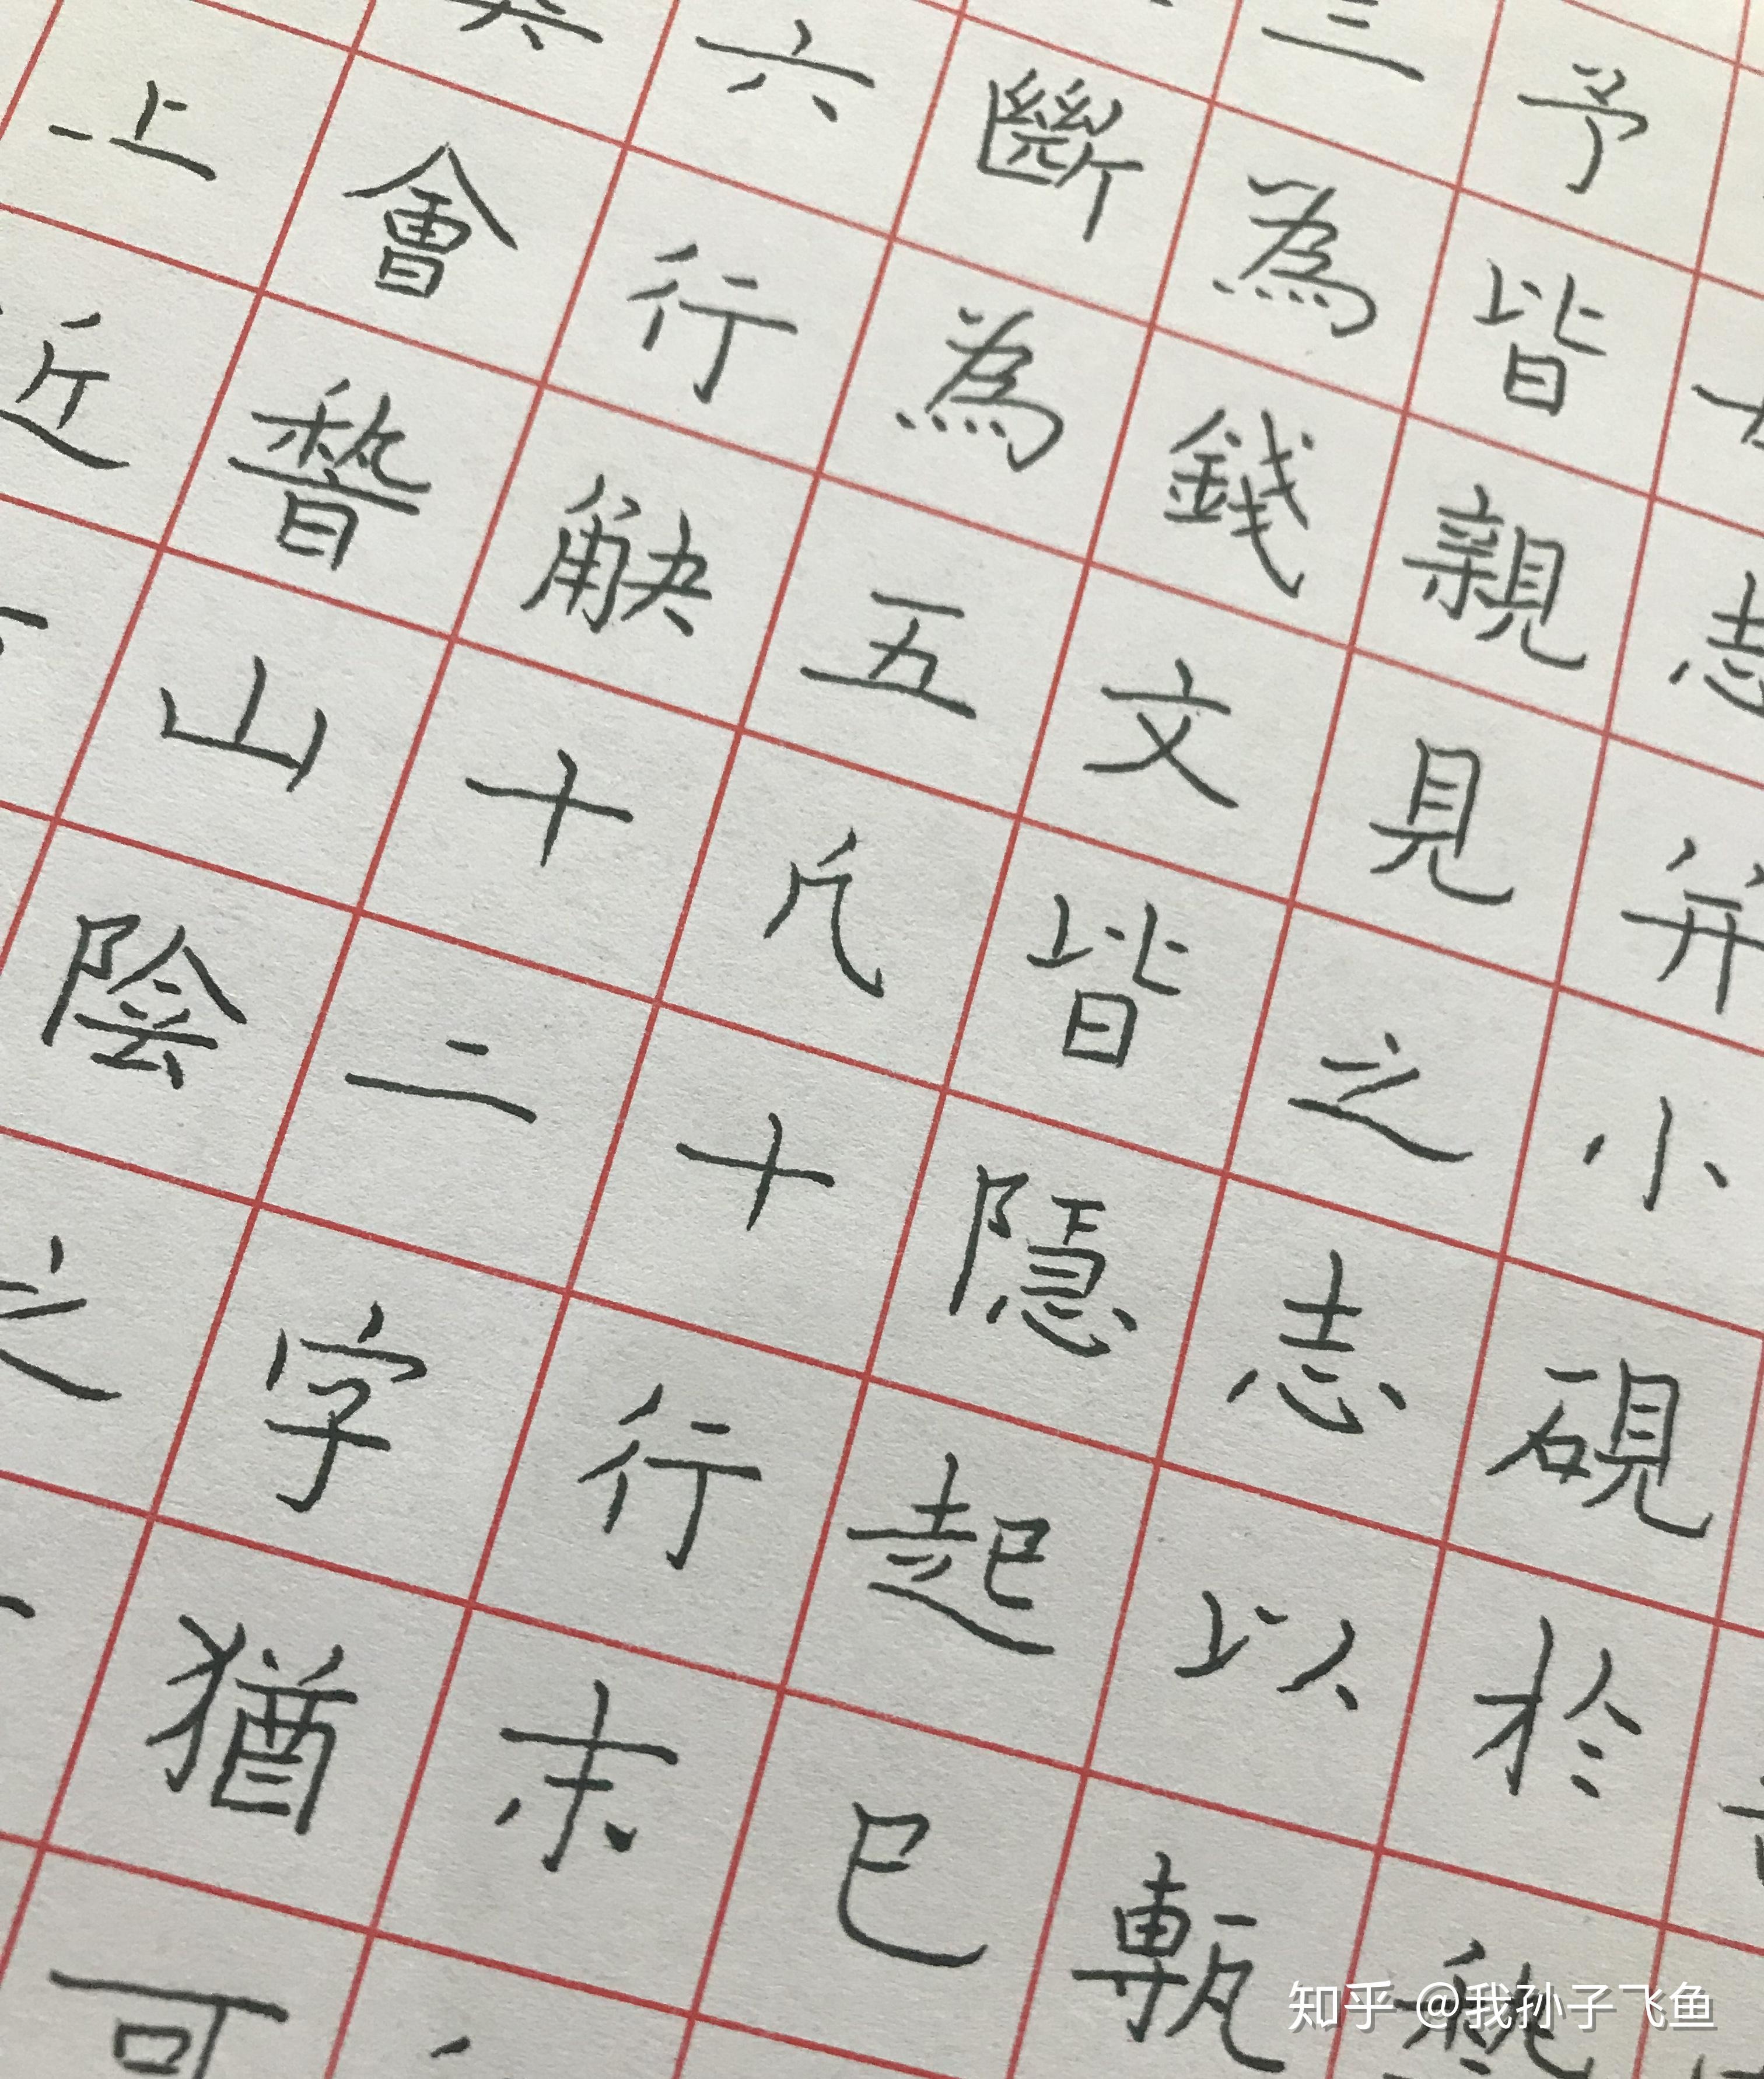 志并小硯於
予皆親見之志以甎
三為錢文皆隱起已
斷為五凡十行末
六行缺十二字猶可
會稽山陰之
上近
知乎 @我孙子飞鱼